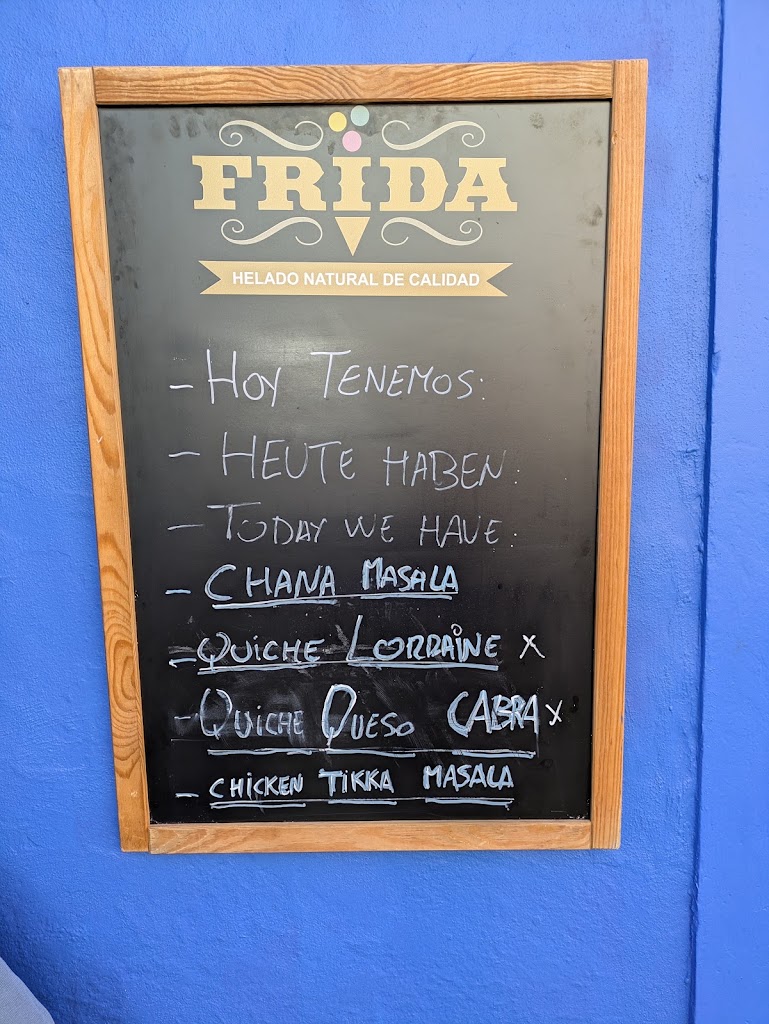 FRIDA
HELADO NATURAL DE CALIDAD
- HOY TENEMOS:
- HEUTE HABEN:
- TODAY WE HAVE:
- CHANA MASALA
- QUICHE LORRAINE X
- QUICHE QUESO CABRA X
- CHICKEN TIKKA MASALA